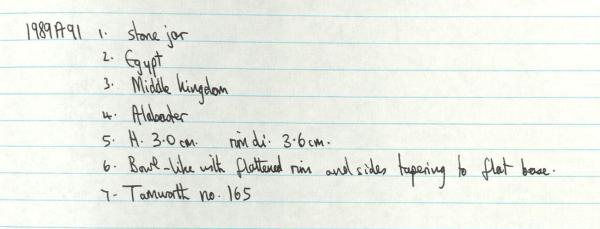 1989A91 1. Stone jar
2. Egypt
3. Middle Kingdom
4. Alabaster
5. H. 3.0 cm. rim di. 3.6 cm.
6. Bowl-like with flattened rim and sides tapering to flat base.
7- Tamworth no. 165